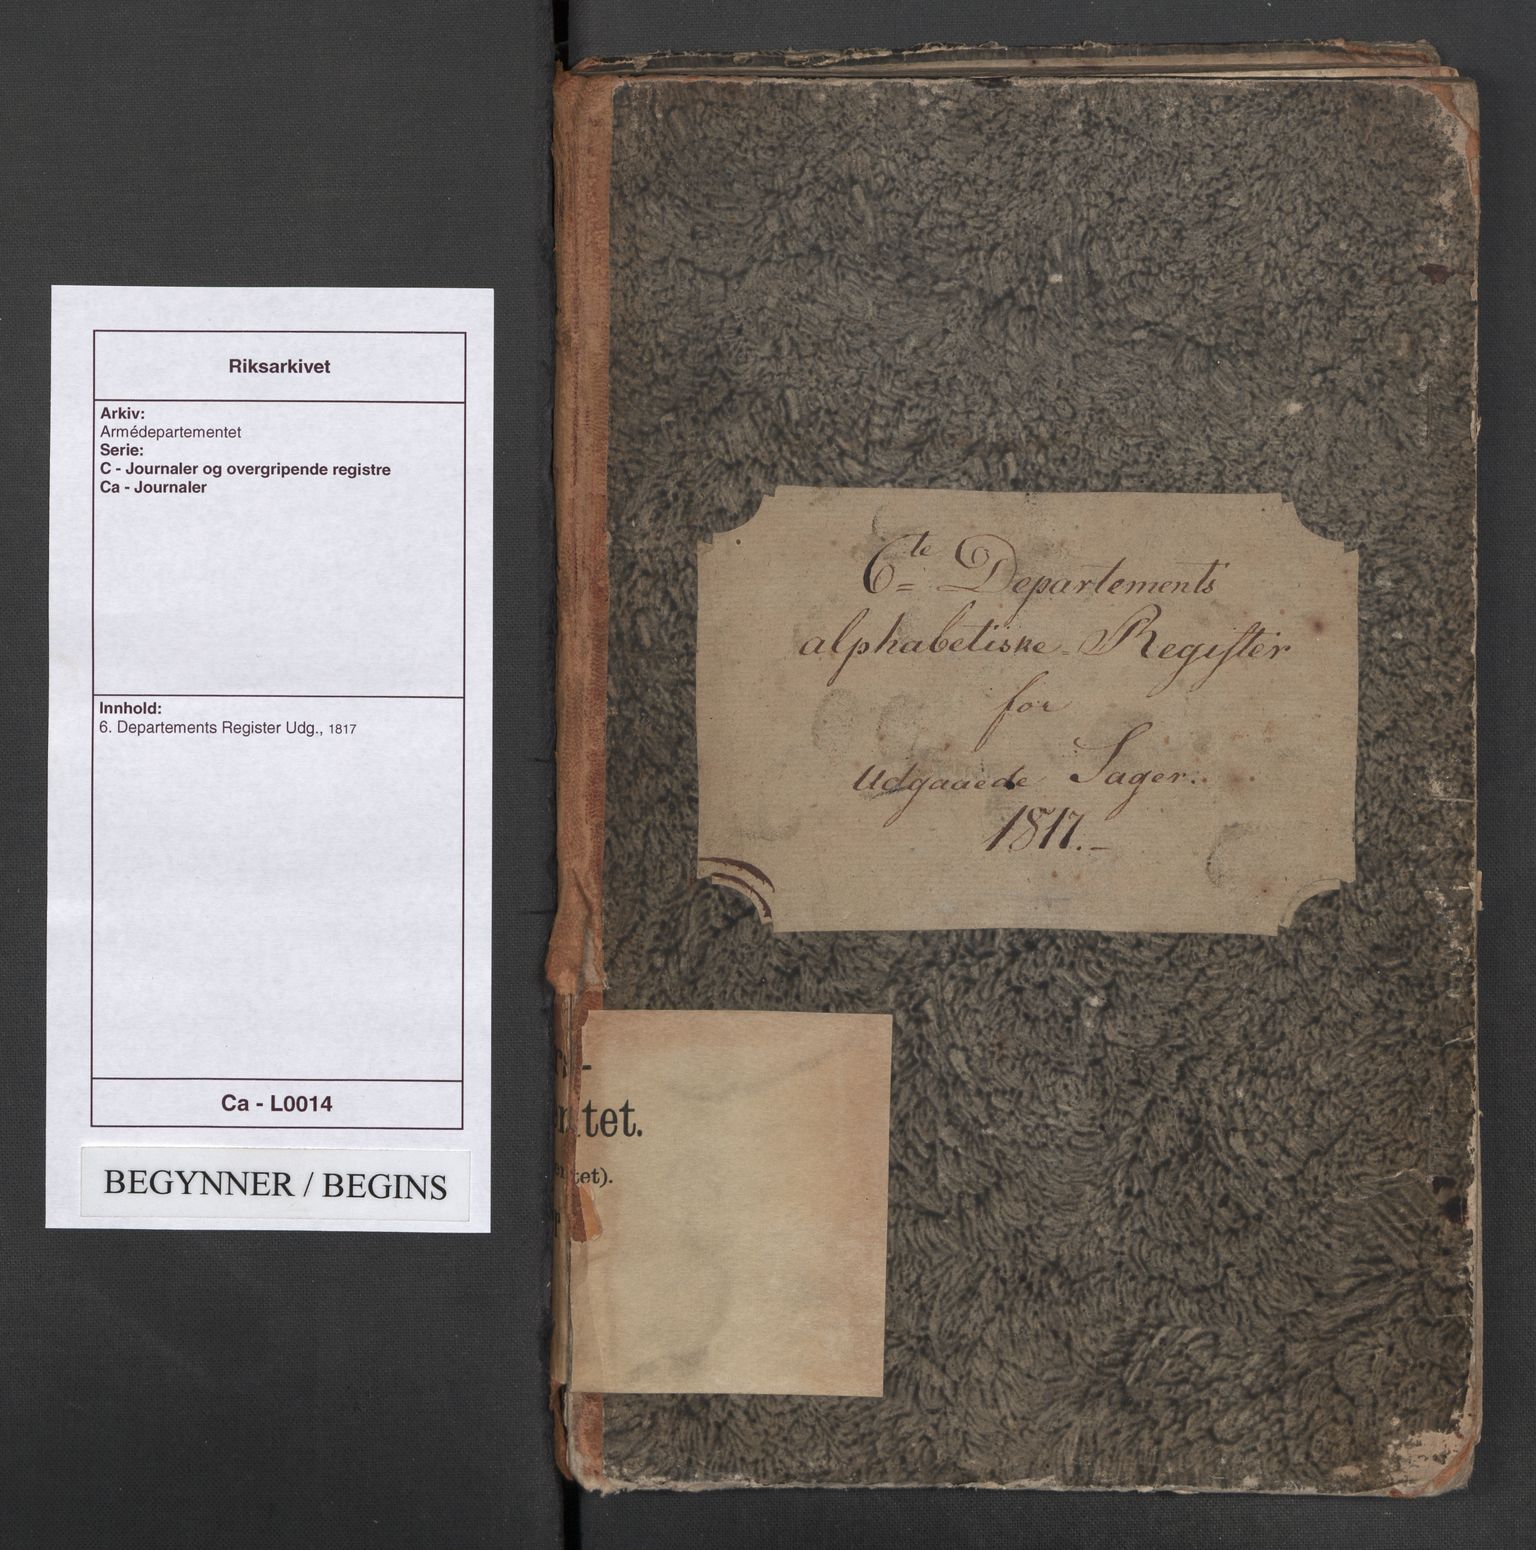 Riksarkivet
Arkiv:
Armédepartementet
Serie:
C - Journaler og overgripende registre
Ca - Journaler
Innhold:
6. Departements Register Udg., 1817
Ca - L0014
BEGYNNER / BEGINS
6te Departements
alphabetiske Register
for
Udgaaede Sager.
1817.-
ntet.
tet).